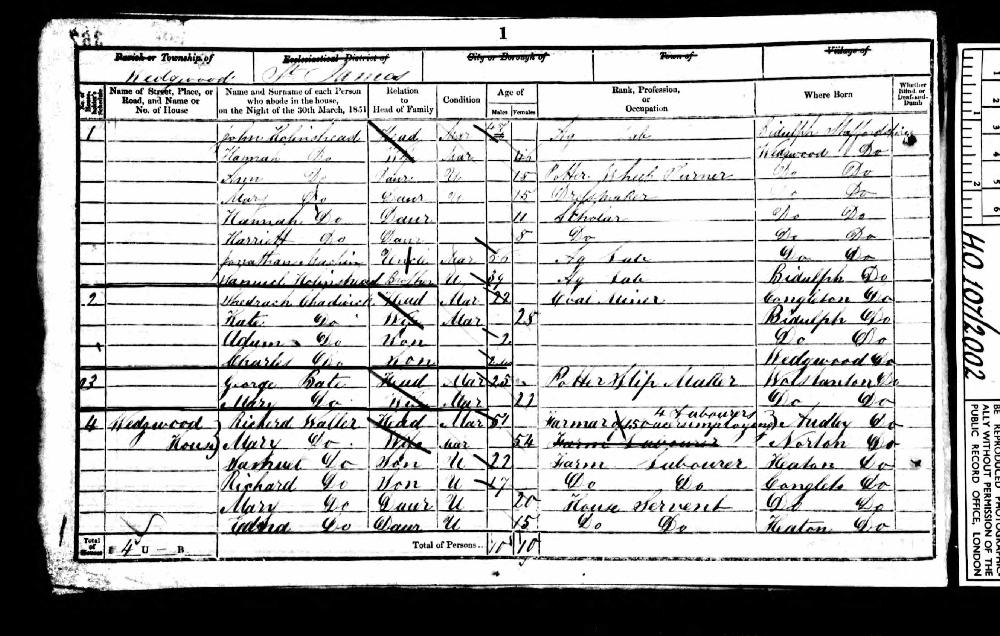 1
Parish or Township of Ecclesiastical District of City or Borough of Town of Village of
Wedgwood St James
Name of Street, Place, or Road, and Name or No. of House Name and Surname of each Person who abode in the house, on the Night of the 30th March, 1851 Relation to Head of Family Condition Age of Males Females Rank, Profession, or Occupation Where Born Whether Blind, or Deaf-and-Dumb
1 John Holinshead Head Mar 48 Ag Lab Bidulph Staffordshire
Hannah Do Wife Mar Wedgwood Do
Ann Do Daur U 15 Potter Wheel Turner Do Do
Mary Do Daur U 15 Dressmaker Do Do
Hannah Do Daur 11 Scholar Do Do
Harriett Do Daur 8 Do Do Do
Jonathan Machin Uncle Mar 50 Ag Lab Do Do
Samuel Holinshead Brother U 39 Ag Lab Bidulph Do
2 Shedrach Chadwick Head Mar 22 Coal Miner Congleton Do
Kate Do Wife Mar 28 Bidulph Do
Adam Do Son 2 Do Do
Charles Do Son Wedgwood Do
3 George Bate Head Mar 25 Potter Slip Maker Wolstanton Do
Mary Do Wife Mar 22 Do Do
4 Wedgwood House Richard Waller Head Mar 51 Farmar of 150 acres employing 4 Labourers Audley Do
Mary Do Wife Mar 54 Farm Labourer Norton Do
Samuel Do Son U 22 Farm Labourer Heaton Do
Richard Do Son U 17 Do Do Conglets Do
Mary Do Daur U 20 House Servent Do Do
Do Daur U 15 Do Do Heaton Do
Total of Houses 4 U — B Total of Persons 10 10
HO.107/2002
BE REPRODUCED PHOTOGRAPHIC-
ALLY WITHOUT PERMISSION OF THE
PUBLIC RECORD OFFICE, LONDON